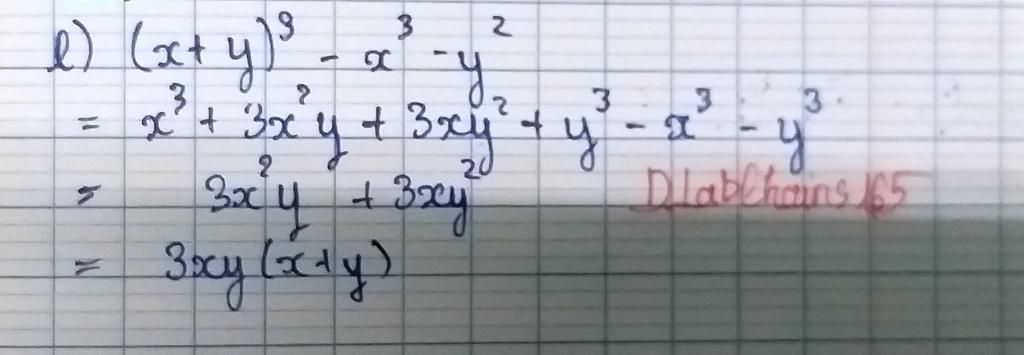 l) (x + y)³ - x³ - y²
= x³ + 3x²y + 3xy² + y³ - x³ - y³
= 3x²y + 3xy²
DLabChains165
= 3xy (x + y)